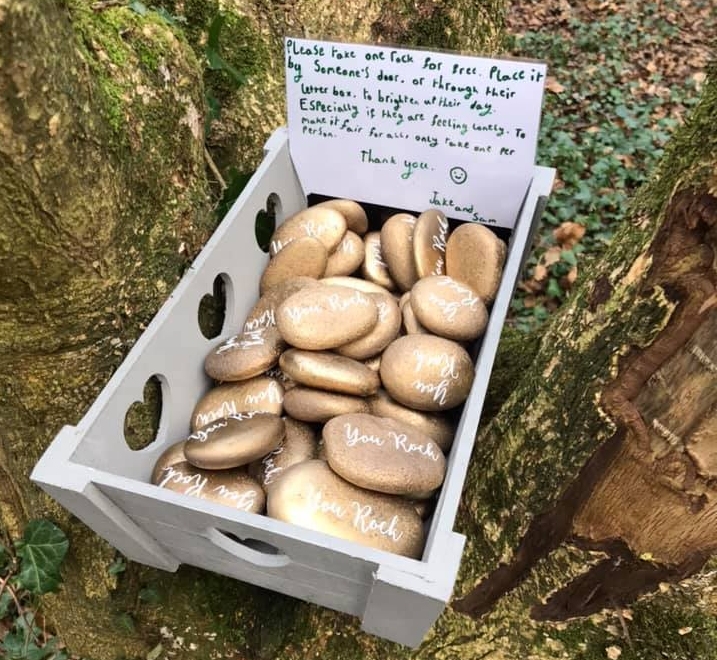 Please take one rock for free. Place it
by Someone's door, or through their
letter box, to brighten up their day.
ESPecially if they are feeling lonely. To
make it fair for all: only take one per
Person.
Thank you.
Jake and Sam
You Rock
You Rock
You Rock
You Rock
You Rock
You Rock
You Rock
You Rock
You Rock
You Rock